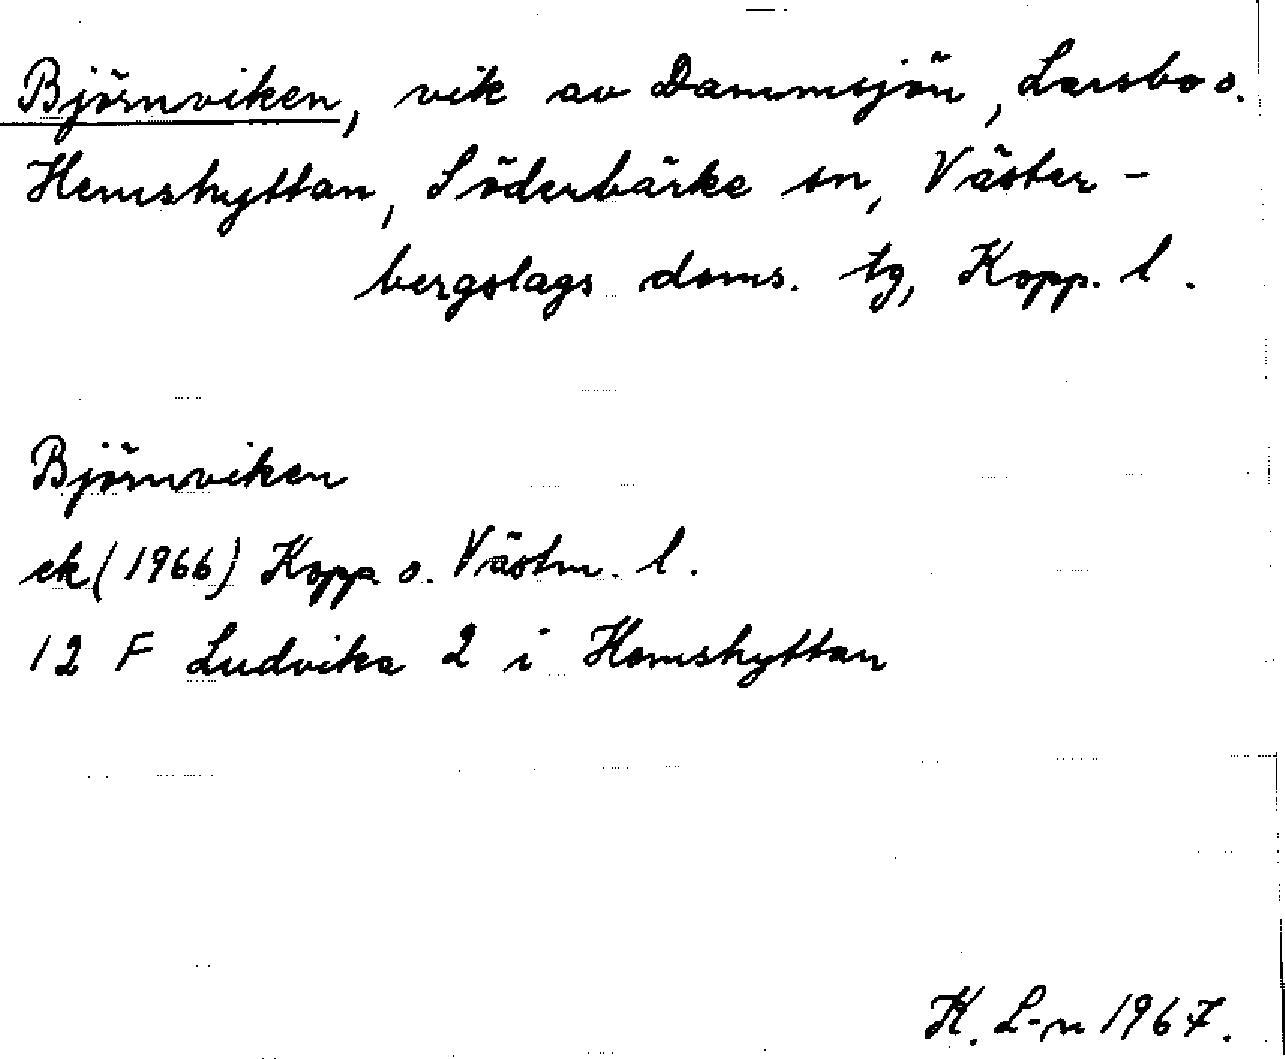 Björnviken, vik av Dammsjön, Larsbo o.
Hemshyttan, Söderbärke sn, Väster-
bergslags doms. tg, Kopp. l.
Björnviken
ek (1966) Kopp. o. Västm. l.
12 F Ludvika 2 i Hemshyttan
K. L-n 1967.